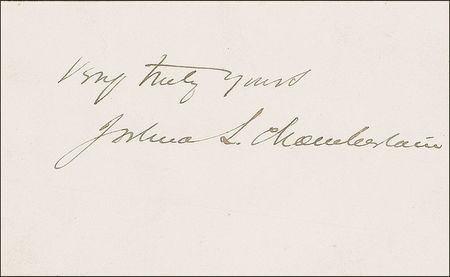 Very truly yours
Joshua L. Chamberlain